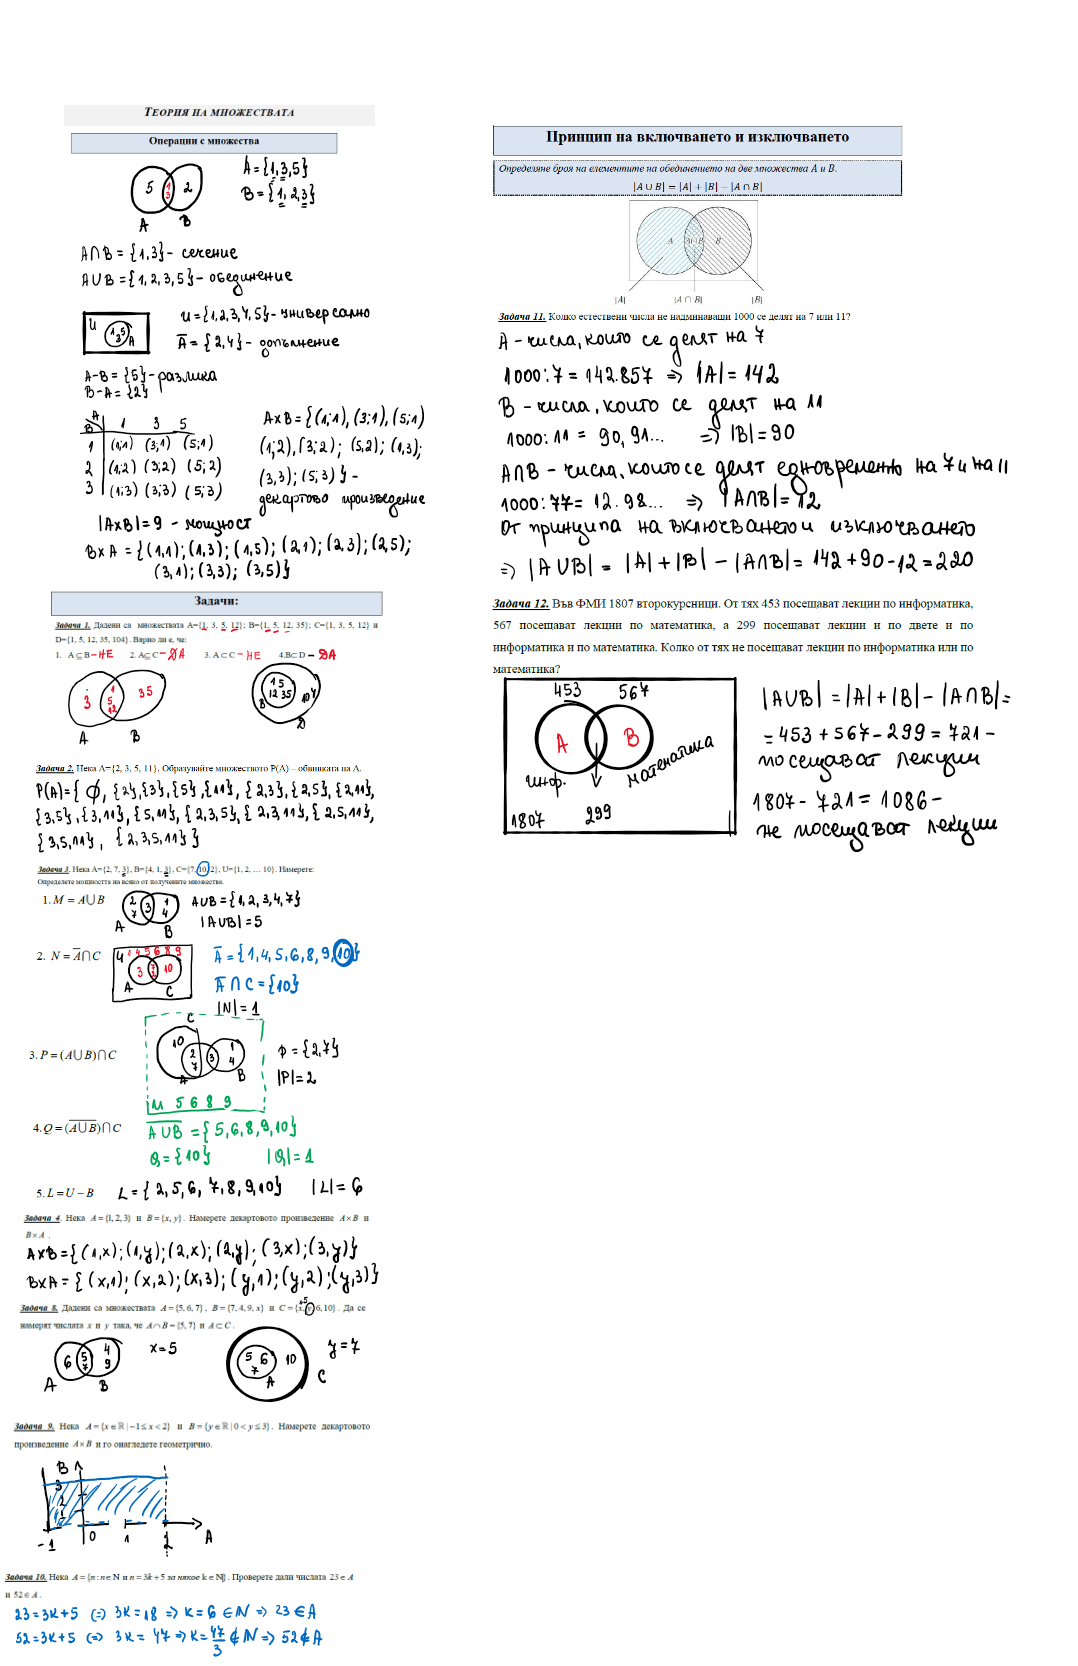 ТЕОРИЯ НА МНОЖЕСТВАТА
Операции с множества
5 1 3 2
A B
A = {1,3,5}
B = {1, 2,3}
A∩B = {1,3} - сечение
A∪B = {1, 2, 3, 5} - обединение
U 1 3 5 A
U = {1,2,3,4,5} - универсално
A̅ = {2,4} - допълнение
A-B = {5} - разлика
B-A = {2}
A 1 3 5
B
1 (1;1) (3;1) (5;1)
2 (1;2) (3;2) (5;2)
3 (1;3) (3;3) (5;3)
A×B = {(1;1), (3;1), (5;1)
(1;2), (3;2); (5,2); (1,3);
(3,3); (5;3)} -
декартово произведение
|A×B| = 9 - мощност
B×A = {(1,1); (1,3); (1,5); (2,1); (2,3); (2,5);
(3,1); (3,3); (3,5)}
Задачи:
Задача 1. Дадени са множествата A={1, 3, 5, 12}; B={1, 5, 12, 35}; C={1, 3, 5, 12} и
D={1, 5, 12, 35, 104}. Вярно ли е, че:
1. A⊆B - НЕ 2. A⊆C - ДА 3. A⊂C - НЕ 4.B⊂D - ДА
3 1 5 12 35
A B
1 5 12 35 104
B D
Задача 2. Нека A={2, 3, 5, 11}. Образувайте множеството P(A) – обвивката на A.
P(A)={ ∅, {2},{3},{5},{11}, {2,3}, {2,5}, {2,11},
{3,5}, {3,11}, {5,11}, {2,3,5}, {2,3,11}, {2,5,11},
{3,5,11}, {2,3,5,11}}
Задача 3. Нека A={2, 7, 3}, B={4, 1, 3}, C={7, 10, 2}, U={1, 2, … 10}. Намерете:
Определете мощността на всяко от получените множества.
1. M = A∪B
2 7 3 1 4
A B
A∪B = {1,2,3,4,7}
|A∪B| = 5
2. N = A̅∩C
U 1 4 5 6 8 9
3 10
A C
A̅ = {1,4,5,6,8,9,10}
A̅∩C = {10}
|N| = 1
3. P = (A∪B)∩C
C
10 2 7 3 1 4
A B
U 5 6 8 9
P = {2,7}
|P| = 2
4. Q = (A∪B)̅∩C
A∪B̅ = {5,6,8,9,10}
Q = {10} |Q| = 1
5. L = U − B
L = {2,5,6, 7,8,9,10} |L| = 6
Задача 4. Нека A = {1, 2, 3} и B = {x, y}. Намерете декартовото произведение A×B и
B×A.
A×B = {(1,x); (1,y); (2,x); (2,y); (3,x); (3,y)}
B×A = {(x,1); (x,2); (x,3); (y,1); (y,2); (y,3)}
Задача 8. Дадени са множествата A = {5, 6, 7}, B = {7, 4, 9, x} и C = {x, y, 6, 10}. Да се
намерят числата x и y така, че A∩B = {5, 7} и A⊂C.
6 5 7 4 9
A B
x = 5
5 6 7 10
A C
y = 7
Задача 9. Нека A = {x∈ℝ | −1≤ x < 2} и B = {y∈ℝ | 0 < y ≤ 3}. Намерете декартовото
произведение A×B и го онагледете геометрично.
B
3
2
1
-1 0 1 2 A
Задача 10. Нека A = {n : n∈N и n = 3k + 5 за някое k∈N}. Проверете дали числата 23∈A
и 52∈A.
23 = 3K+5 (=) 3K = 18 => K = 6 ∈ N => 23 ∈ A
52 = 3K+5 (=) 3K = 47 => K = 47/3 ∉ N => 52 ∉ A
Принцип на включването и изключването
Определяне броя на елементите на обединението на две множества A и B.
|A∪B| = |A| + |B| − |A∩B|
A A∩B B
|A| |A∩B| |B|
Задача 11. Колко естествени числа не надминаващи 1000 се делят на 7 или 11?
A - числа, които се делят на 7
1000:7 = 142.857 => |A| = 142
B - числа, които се делят на 11
1000:11 = 90,91... => |B| = 90
A∩B - числа, които се делят едновременно на 7 и на 11
1000:77 = 12.98... => |A∩B| = 12
От принципа на включването и изключването
=> |A∪B| = |A|+|B| - |A∩B| = 142+90-12 = 220
Задача 12. Във ФМИ 1807 второкурсници. От тях 453 посещават лекции по информатика,
567 посещават лекции по математика, а 299 посещават лекции и по двете и по
информатика и по математика. Колко от тях не посещават лекции по информатика или по
математика?
453 567
A B
инф. математика
1807 299
|A∪B| = |A|+|B| - |A∩B| =
= 453 + 567 - 299 = 721 -
посещават лекции
1807 - 721 = 1086 -
не посещават лекции